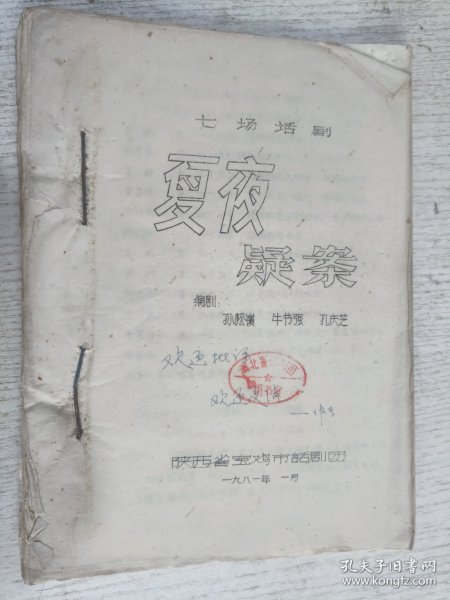 七场话剧
夏夜
疑案
编剧：
孙松岭 牛书强 孔庆芝
欢迎批评
欢迎
陕西省宝鸡市話剧团
一九八一年 一月
孔夫子旧书网
www.kongfz.com